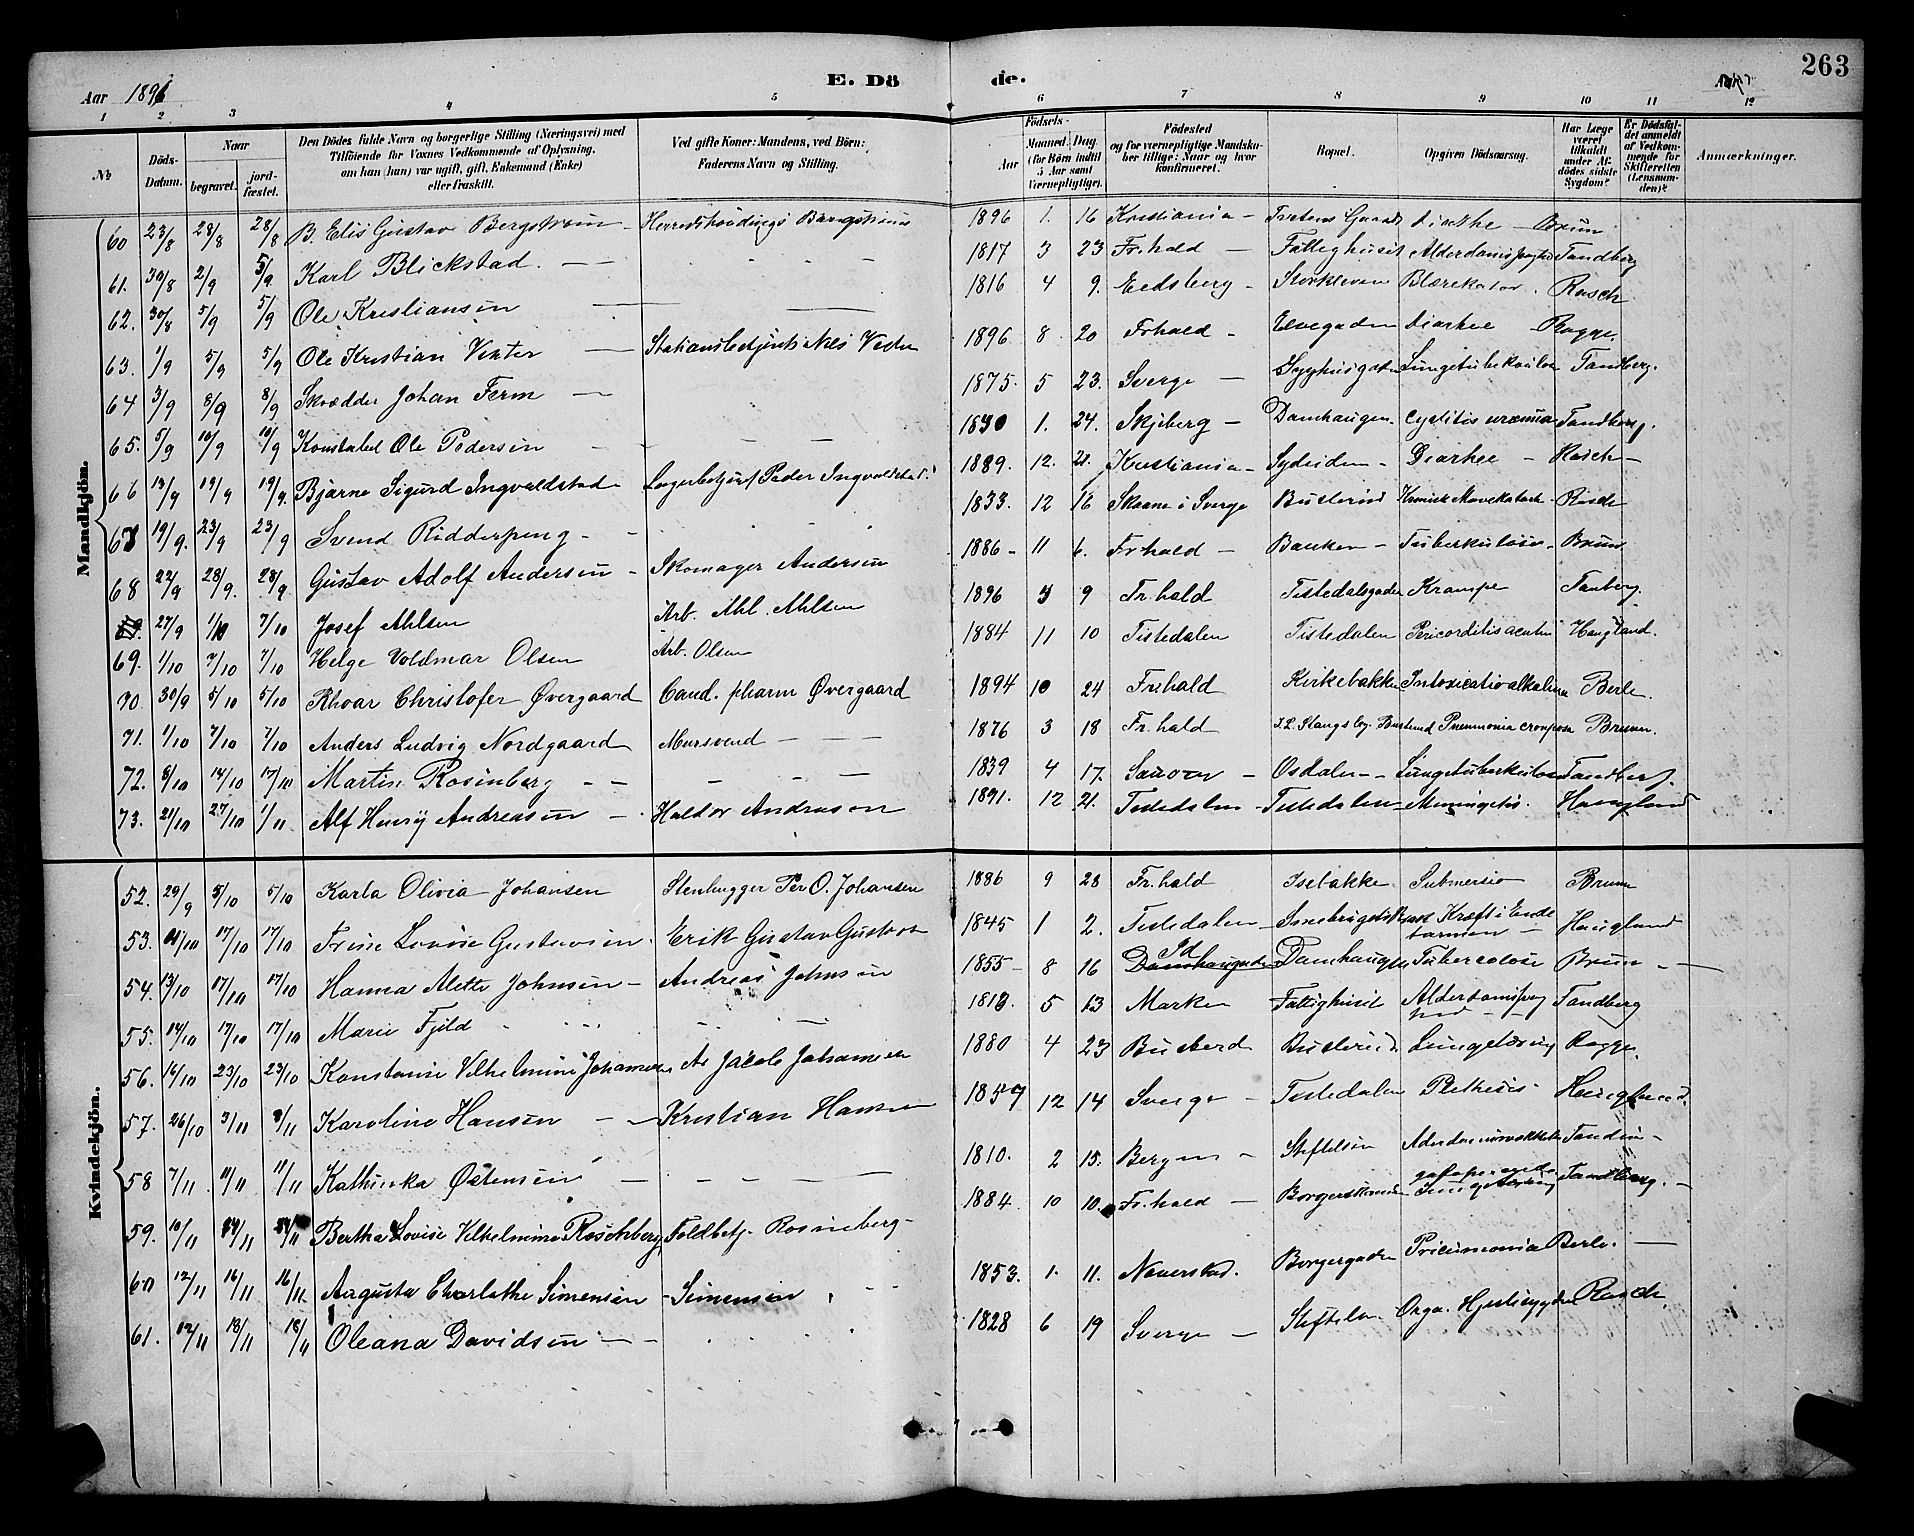 Aar 1896 E. Dö de. 263
1 2 3 4 5 6 7 8 9 10 11 12
No
Döds-Datum.
Naar
begravet.
jord-fæstet.
Den Dödes fulde Navn og borgerlige Stilling (Næringsvei) med
Tilföiende for Voxnes Vedkommende af Oplysning,
om han (hun) var ugift, gift, Enkemand (Enke)
eller fraskilt.
Ved gifte Koner: Mandens, ved Börn:
Faderens Navn og Stilling.
Födsels-
Aar
Maaned. Dag
(for Börn indtil
5 Aar samt
Værnepligtige).
Födested
og for værnepligtige Mandskaber tillige: Naar og hvor
konfirmeret.
Bopæl.
Opgiven Dödsaarsag.
Har Læge
været
tilkaldt
under Afdödes sidste
Sygdom?
Er Dödsfaldet anmeldt
af Vedkommende for
Skifteretten
(Lensmanden)?
Anmærkninger.
Mandkjön.
60 23/8 28/8 28/8 B. Elis Gustav Bergstrøm 1896 1. 16 Kristiania - Brun
61. 30/8 2/9 5/9 Karl Blickstad. 1817 3 23 Fr.hald - Fattighuset Tandberg
62. 30/8 5/9 5/9 Ole Kristiansen 1816 4 9. Eedsberg - Rasch
63. 1/9 5/9 5/9 Ole Kristian Vister 1896 8 20 Frhald - Elvegaden Diarhee Bagge
64 3/9 8/9 8/9 Skrædder Johan Ferm 1875. 5 23. Sverge - Tandberg.
65. 5/9 10/9 10/9 Konstabel Ole Pedersen 1. 24. Skjeberg - Damhaugen. Cystitis uræmia Tandberg.
66 13/9 19/9 19/9 Bjarne Sigurd Ingvaldstad Lagerbetjent Peder Ingvaldstad 1889. 12. 21. Kristiania - Sydsiden - Diarhee - Rasch -
67 19/9. 23/9 23/9 Svend Ridderpeng - 1833. 12 16 Skaane i Sverge Busterud Rasch
68 22/9 28/9. 28/9 Gustav Adolf Andersen - Skomager Andersen 1886 - 11 6. Frhald - Banken - Tuberkulose. Brun
27/9 1/10 7/10 Josef Ahlsen Arb. Ahl. Ahlsen 1896 9 Fr.hald Tistedalsgaden Krampe Tanberg.
69. 1/10 7/10 7/10 Helge Voldmar Olsen Arb. Olsen 1884 11 10 Tistedalen Tistedalen Haugland.
70. 30/9 5/10 5/10 Rhoar Christofer Øvergaard Cand. pharm Øvergaard 1894 10 24 Fr.hald Kirkebakken Intoxicatio alkalina Berle.
71. 1/10 7/10 7/10 Anders Ludvig Nordgaard Mursvend 1876 3 18 Fr.hald Pneumonia crouposa Brunn.
72. 8/10 14/10 17/10 Martin Rosenberg 1839 4 17. Osdalen - Lungetuberkulose Tandberg.
73. 21/10 27/10 1/11 Alf Henry Andreasen - Haldor Andreasen 1891. 12 21. Tistedalen - Tistedalen - Meningitis. Haugland
Kvindekjön.
52. 29/9 5/10 5/10 Karla Olivia Johansen Stenhugger Per O. Johansen 1886 9 28 Fr.hald Isebakke Submersio Brunn
53. 17/10 17/10 Trine Lovise Gustavsen. Erik Gustav Gustavsen 1845 1 2. Tistedalen - Kræft i Endetarmen - Haugland
54. 13/10 17/10 17/10 Hanna Alette Johnsen - Andreas Johnsen 1855 - 8 16 Id Damhaugen Tuberculose Brun - -
55. 14/10 17/10 17/10 Marie Fjeld 5 13 Marken Fattighuset Tandberg
56. 16/10 23/10 23/10 Konstanse Vilhelmine Johansen Ar Jacob Johansen 1880 4 23 Busterd Busterud Bagge.
57. 26/10 3/11 Karoline Hansen - Kristian Hansen 12 14 Sverge - Tistedalen Haugland.
58 7/11 11/11 11/11 Kathinka Østensen 1810. 2 15. Bergen - Stiftelsen
59. 10/11 14/11 14/11 Bertha Lovise Vilhelmine Rosenberg Toldbetj. Rosenberg - 1884. 10 10. Fr.hald - Tandberg. -
60 12/11 16/11 16/11 Augusta Charlothe Simensen - Simensen 1853. 1. 11. Naverstad. Borgergaden Berle. -
61. 12/11 18/11 18/11 Oleana Davidsen - 1828 6 19 Sverge - Stiftelsen Orga. Hjertesygdom Rasch